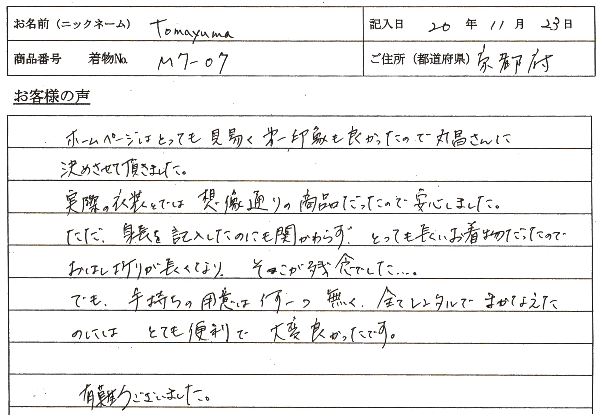 お名前（ニックネーム） Tomayuma 記入日 20 年 11 月 23 日
商品番号 着物No. M7-07 ご住所（都道府県） 京都府
お客様の声
ホームページはとっても見易く第一印象も良かったので丸昌さんに
決めさせて頂きました。
実際の衣装とでは 想像通りの商品だったので安心しました。
ただ、身長を記入したのにも関わらず、とっても長いお着物だったので
おはしょりが長くなり、そこが残念でした…。
でも、手持ちの用意は何一つ無く、全てレンタルでまかなえた
のには とても便利で 大変良かったです。
有難うございました。